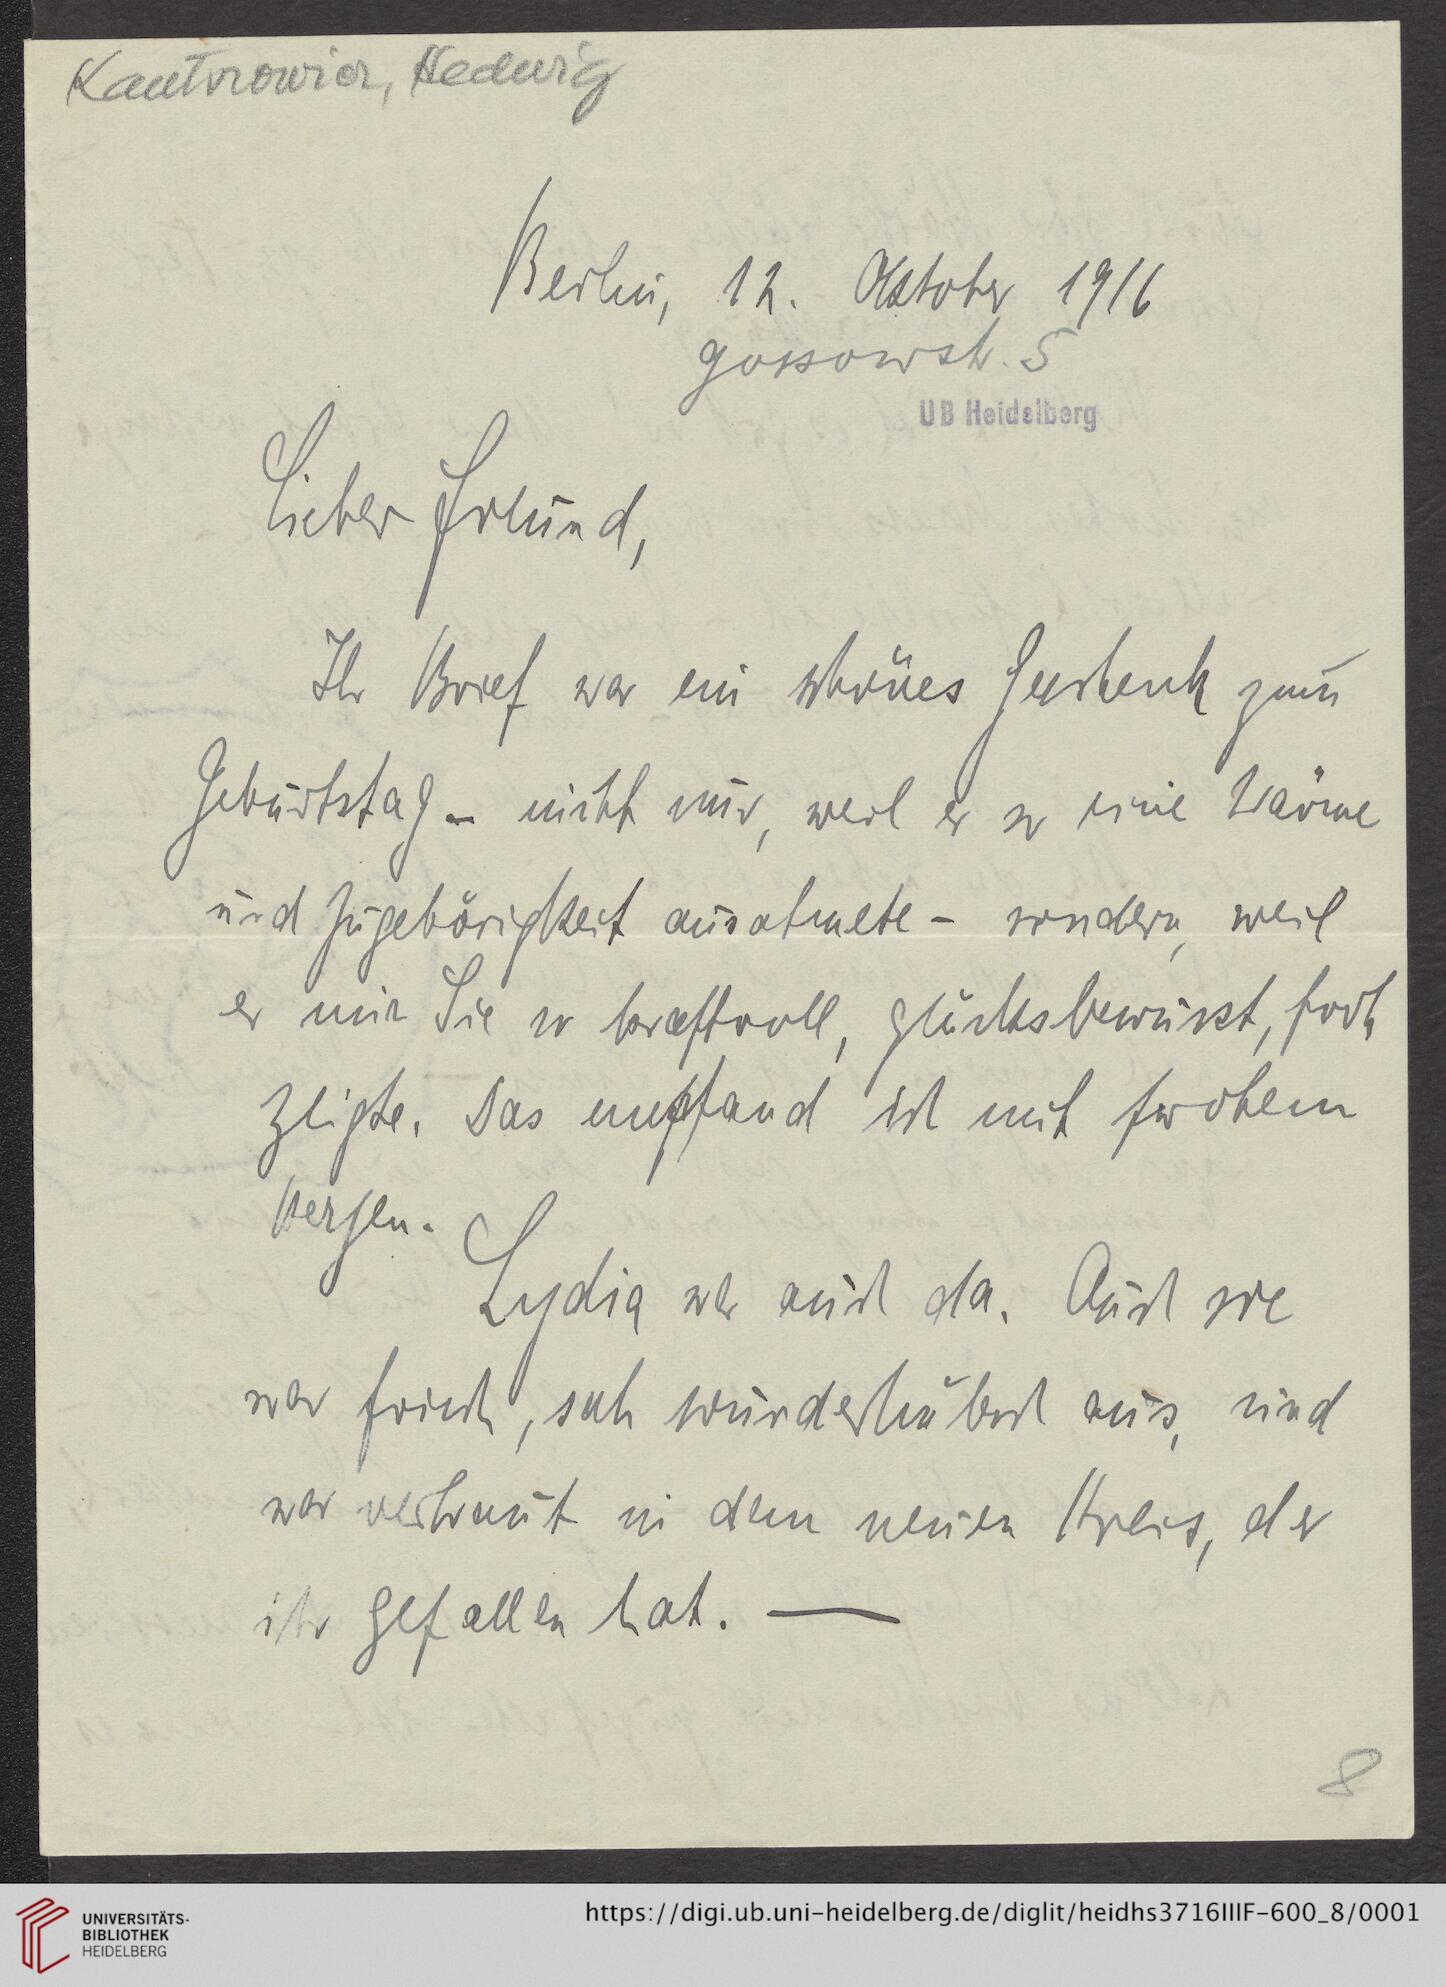 Kantorowicz, Hedwig
Berlin, 12. Oktober 1916
Gossowstr. 5
UB Heidelberg
Lieber Freund,
Ihr Brief war ein schönes Geschenk zum
Geburtstag – nicht nur, weil er so eine Wärme
und Zugehörigkeit ausatmete – sondern, weil
er mir Sie so kraftvoll, glücksbewusst, froh
zeigte. Das empfand ich mit frohem
Herzen.
Lydia war auch da. Auch sie
war frisch, sah wunderhübsch aus, und
war vertraut in dem neuen Kreis, der
ihr gefallen hat. —
8
UNIVERSITÄTS-
BIBLIOTHEK
HEIDELBERG
https://digi.ub.uni-heidelberg.de/diglit/heidhs3716IIIF-600_8/0001